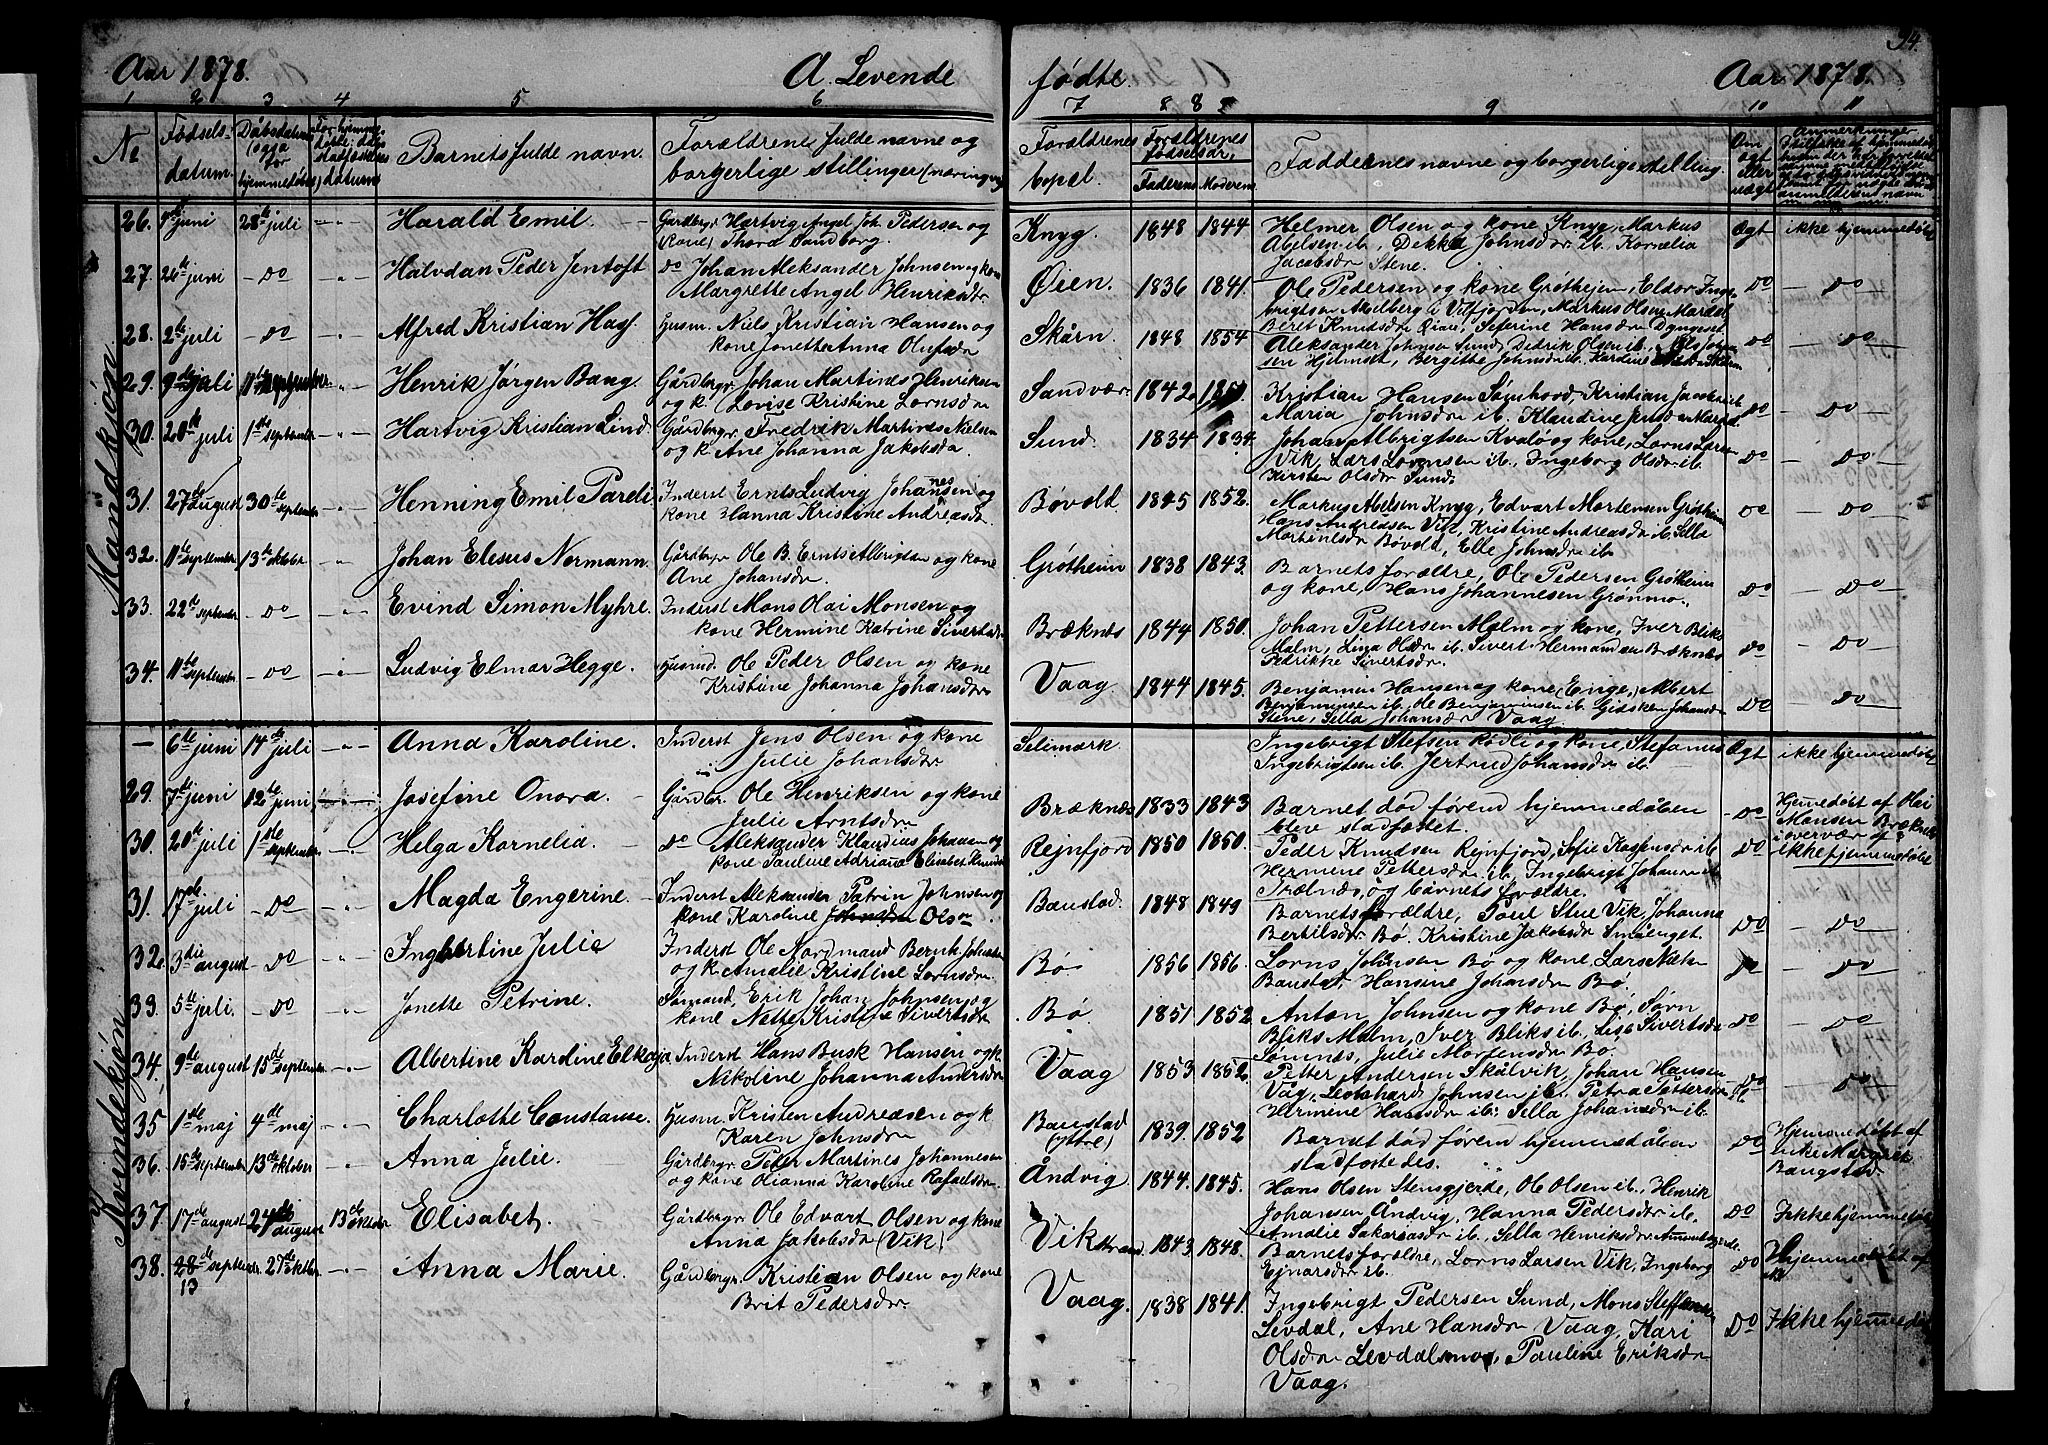 34.
Aar 1878. A. Levende fødte. Aar 1878.
1 2 3 4 5 6 7 8 8 9 10 11
No Fødsels- datum. Dåbsdatum (også for hjemmedøbte) datum Barnets fulde navn. Forældrenes fulde navne og borgerlige stillinger (næringsvej) Forældrenes bopel. Forældrenes fødselsår, Faderens Moderens Faddernes navne og borgerlige stilling. Om ægt eller uægt
Mandkjøn.
26. juni 28de juli Harald Emil. Gårdbrgr Hartvig Angel Joh. Pedersen og
(kone) Thora Sandborg. Knyg. 1848 1844 Helmer Olsen og kone Knyg, Markus
Abelsen ib., Dekka Johnsdr ib. Kornelia
Jacobsdr Stene. Ægt ikke hjemmedøbt
27. 26de juni Do Halvdan Peder Jentoft Do Johan Aleksander Johnsen og kone
Margrette Angel Henriksdtr Øien. 1836 1841. Ole Pedersen og kone Grøtheim, Eldor Inge-
Do Do
28. 2de juli Do Alfred Kristian Hasf. Husm. Niels Kristian Hansen og
kone Jonetta Anna Olufsdr Skårn 1848 1854 Aleksander Johnsen Sund, Didrik Olsen ib.
Do Do
29. 9de juli Henrik Jørgen Bang. Gårdbrgr Johan Martines Henriksen
og k. Lovise Kristine Lornsdr Sandvær 1842 Kristian Hansen Sømhovd, Kristian Jacobsen ib
Maria Johnsdr ib. Klaudine Do Do
30. 20de juli 1ste september Hartvig Kristian Lind. Gårdbrgr Fredrik Martines Nielsen
og k. Ane Johanna Jakobsdr. Sund. 1834 1834. Johan Albrigtsen Kvalø og kone, Lorns Sørensen
Vik, Lars Lorensen ib., Ingeborg Olsdr ib.
Kirsten Olsdr Sund. Do Do
31. 27de august 30te september Henning Emil Pareli Inderst Ernts Ludvig Johansen og
kone Hanna Kristine Andreasdr. Bøvold 1845 1852. Markus Abelsen Knyg, Edvart Mortensen Grøtheim
Hans Andreasen Vik, Kristine Andreasdr ib. Silla
Martinesdr Bøvold, Elle Johnsdr ib. Do Do
32. 11te september 13de oktober Johan Elesus Normann. Gårdbrgr Ole B. Ernts Albrigtsen og kone
Ane Johansdr. Grøtheim 1838 1843. Barnets forældre, Ole Pedersen Grøtheim
og kone, Hans Johannesen Grønmo. Do Do
33. 22de september Do Evind Simon Myhre. Inderst Mons Olai Monsen og
kone Hermine Katrine Sivertsdr Bræknes 1844 1850. Johan Pettersen Malm og kone, Iver Bliks
Malm, Lina Olsdr ib. Sivert Hermandsen Bræknes
Fedrikke Sivertsdr. Do Do
34. 11te september Do Ludvig Elmar Hegge. Husmd. Ole Peder Olsen og kone
Kristine Johanna Johansdr Vaag. 1844 1845. Benjamin Hansen og kone (Enge,) Albert
Benjaminsen ib., Ole Benjaminsen ib. Gidsken Johansdr
Stene, Silla Johansdr Vaag. Do Do
Kvindekjøn
6te juni 14de juli Anna Karoline. Inderst Jens Olsen og kone
Julie Johansdr Selimark. Ingebrigt Stefsen Rødli og kone, Stefanus
Ingebrigtsen ib. Jertrud Johansdr ib. Ægt ikke hjemmedøbt
29. 7de juni 12te juni Josefine Onora. Gårdbr. Ole Henriksen og kone
Julie Arntsdr Bræknes 1833 1843 Barnet død førend hjemmedåben
blev stadfæstet. Do Hjemmedøbt af
Monsen Bræknes
i overvær af
30. 20de juli 1ste september Helga Kornelia. Do Aleksander Klaudius Johansen og
kone Pauline Adriana Elisabet Knudsdr Rejnfjord 1850 1850. Peder Knudsen Rejnfjord, Sofie Kaspersdr ib.
Hermine Pettersdr ib., Ingebrigt Johansen ib
Trælnes, og barnets forældre. Do ikke hjemmedøbt
31. 17de juli Do Magda Engerine. Inderst Aleksander Patrin Johnsen og
kone Karoline Olsdr Baustad. 1848 1849 Barnets forældre, Poul Stue Vik, Johanna
Bertilsdr Bø. Kristine Jakobsdr Småenget. Do Do
32. 3die august Do Ingbertine Julie Inderst Ole Nordmand Bernt Johnsen
og k. Amalie Kristine Lornsdr. Bø. 1856 1856. Lorns Johansen Bø og kone, Lars
Baustad, Hansine Johansdr Bø. Do Do
33. 5te juli. Do Jonette Petrine. Sømand, Erik Johan Johnsen og
kone Nette Kristine Sivertsdr Bø. 1851 1852. Anton Johnsen og kone Bø, Sørn
Bliks Malm, Iver Bliks ib. Lise Sivertsdr
Sømnes, Julie Mortensdr Bø. Do Do
34. 9de august 15de september Albertine Kardine Elkaja Inderst Hans Busk Hansen og k.
Nikoline Johanna Andersdr Vaag 1853 1852. Petter Andersen Skålvik, Johan Hansen
Våg, Leonhard Johnsen ib., Petra Pettersdr
Hermine Hansdr ib., Silla Johansdr ib. Do Do
35 1ste maj 4de maj Charlotte Constanse. Husm. Kristen Andreasen og k.
Karen Johnsdr Baustad
(ytre) 1839. 1852 Barnet død førend hjemmedåben
stadfæstedes. Do Hjemmedøbt af
enke Margrete
Baugstad
36. 15de september 13de oktober Anna Julie. Gårdbrgr Peter Martines Johannesen
og kone Olianna Karoline Rafaelsdr. Åndvig 1844. 1845. Hans Olsen Stensgjerde, Ole Olsen ib., Henrik
Johansen Åndvig, Hanna Pedersdr ib.
Amalie Sakariasdr ib., Silla Henriksdr Do Ikke hjemmedøbt
37. 17de august 24de august 13de oktober Elisabet. Gårdbrgr Ole Edvart Olsen og kone
Anna Jakobsdr (Vik) Vikstrand. 1843. 1848. Barnets forældre, Lorns Larsen Vik, Ingeborg
Ejnarsdr ib. Do Hjemmedøbt af
38. 28de september 27de oktbr. Anna Marie. Gårdbrgr. Kristian Olsen og kone
13 Brit Pedersdr. Vaag. 1838 1841. Ingebrigt Pedersen Sund, Mons Steffensen
Levdal, Ane Hansdr Vaag, Kari
Olsdr Levdalsmo, Pauline Eriksdr
Vaag. Do Ikke hjemmedøbt